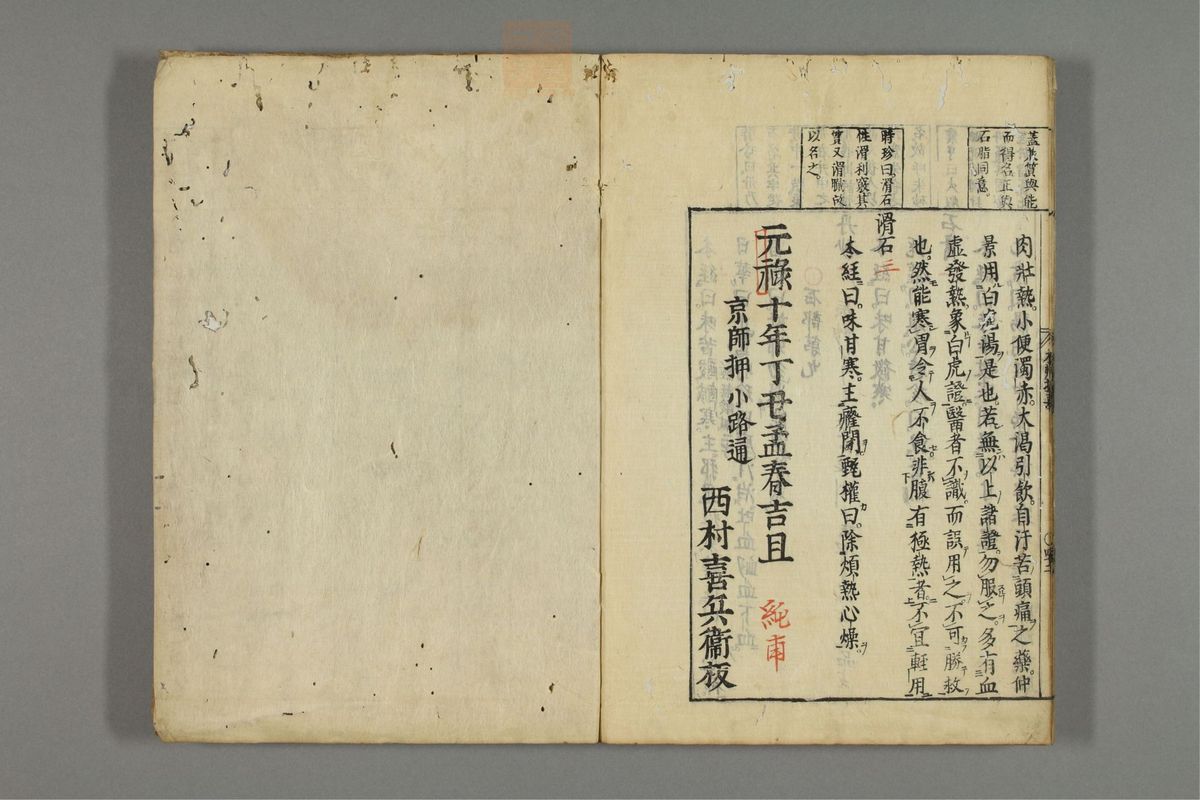 蓋兼質與能
而得名正與
石脂同意
時珍曰滑石
性滑利竅其
質又滑膩故
以名之。
肉壯熱。小便濁赤。大渴引飲。自汗苦頭痛之藥。仲
景用白虎湯是也。若無以上諸證。勿服之。多有血
虛發熱象白虎證。醫者不識而誤用之。不可勝救
也。然能寒胃令人不食。非腹有極熱者。不宜輕用
滑石 三
本經曰。味甘寒。主癃閉。甄權曰。除煩熱心燥。
元祿十年丁丑孟春吉旦
京師押小路通
西村喜兵衞板
純甫